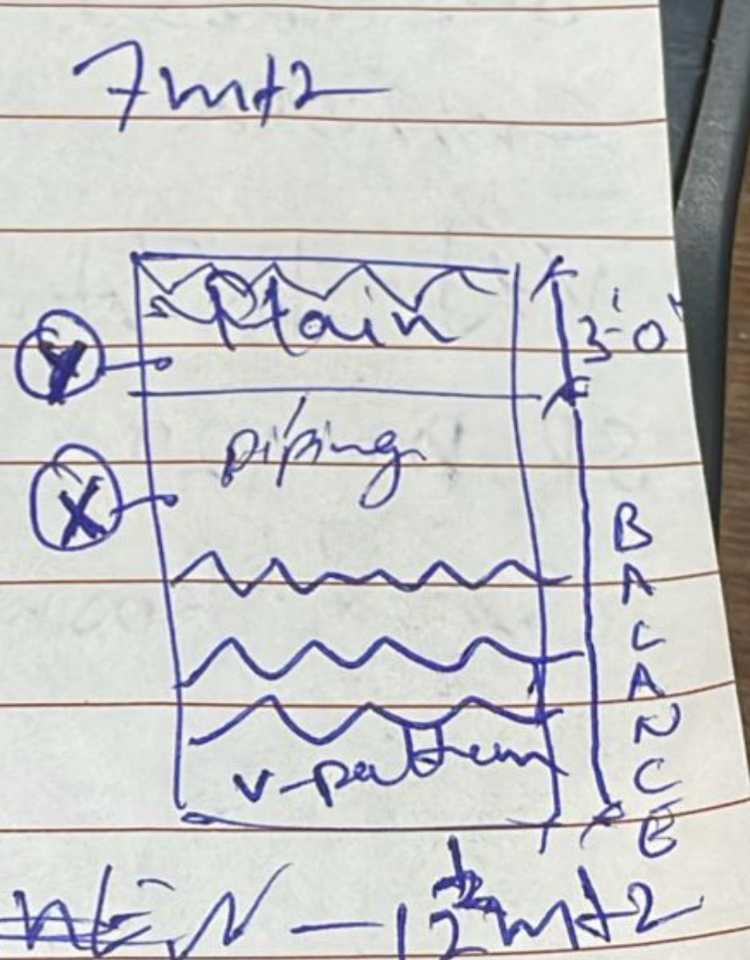 7 mt2
Plain
Y
3'-0"
piping
X
BALANCE
v-pattern
12 1/2 mt2